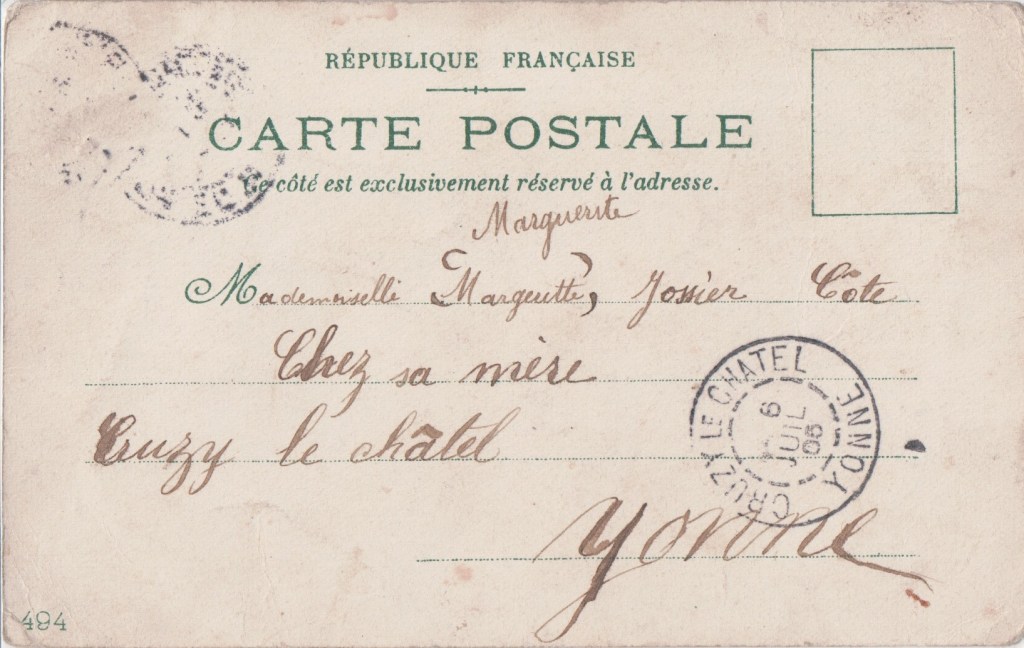 RÉPUBLIQUE FRANÇAISE
CARTE POSTALE
Ce côté est exclusivement réservé à l'adresse.
Marguerite
Mademoiselle (Margeutte) Jossier Côte
Chez sa mère
Cruzy le châtel
Yonne
CRUZY LE CHATEL YONNE
6
JUIL
05
494